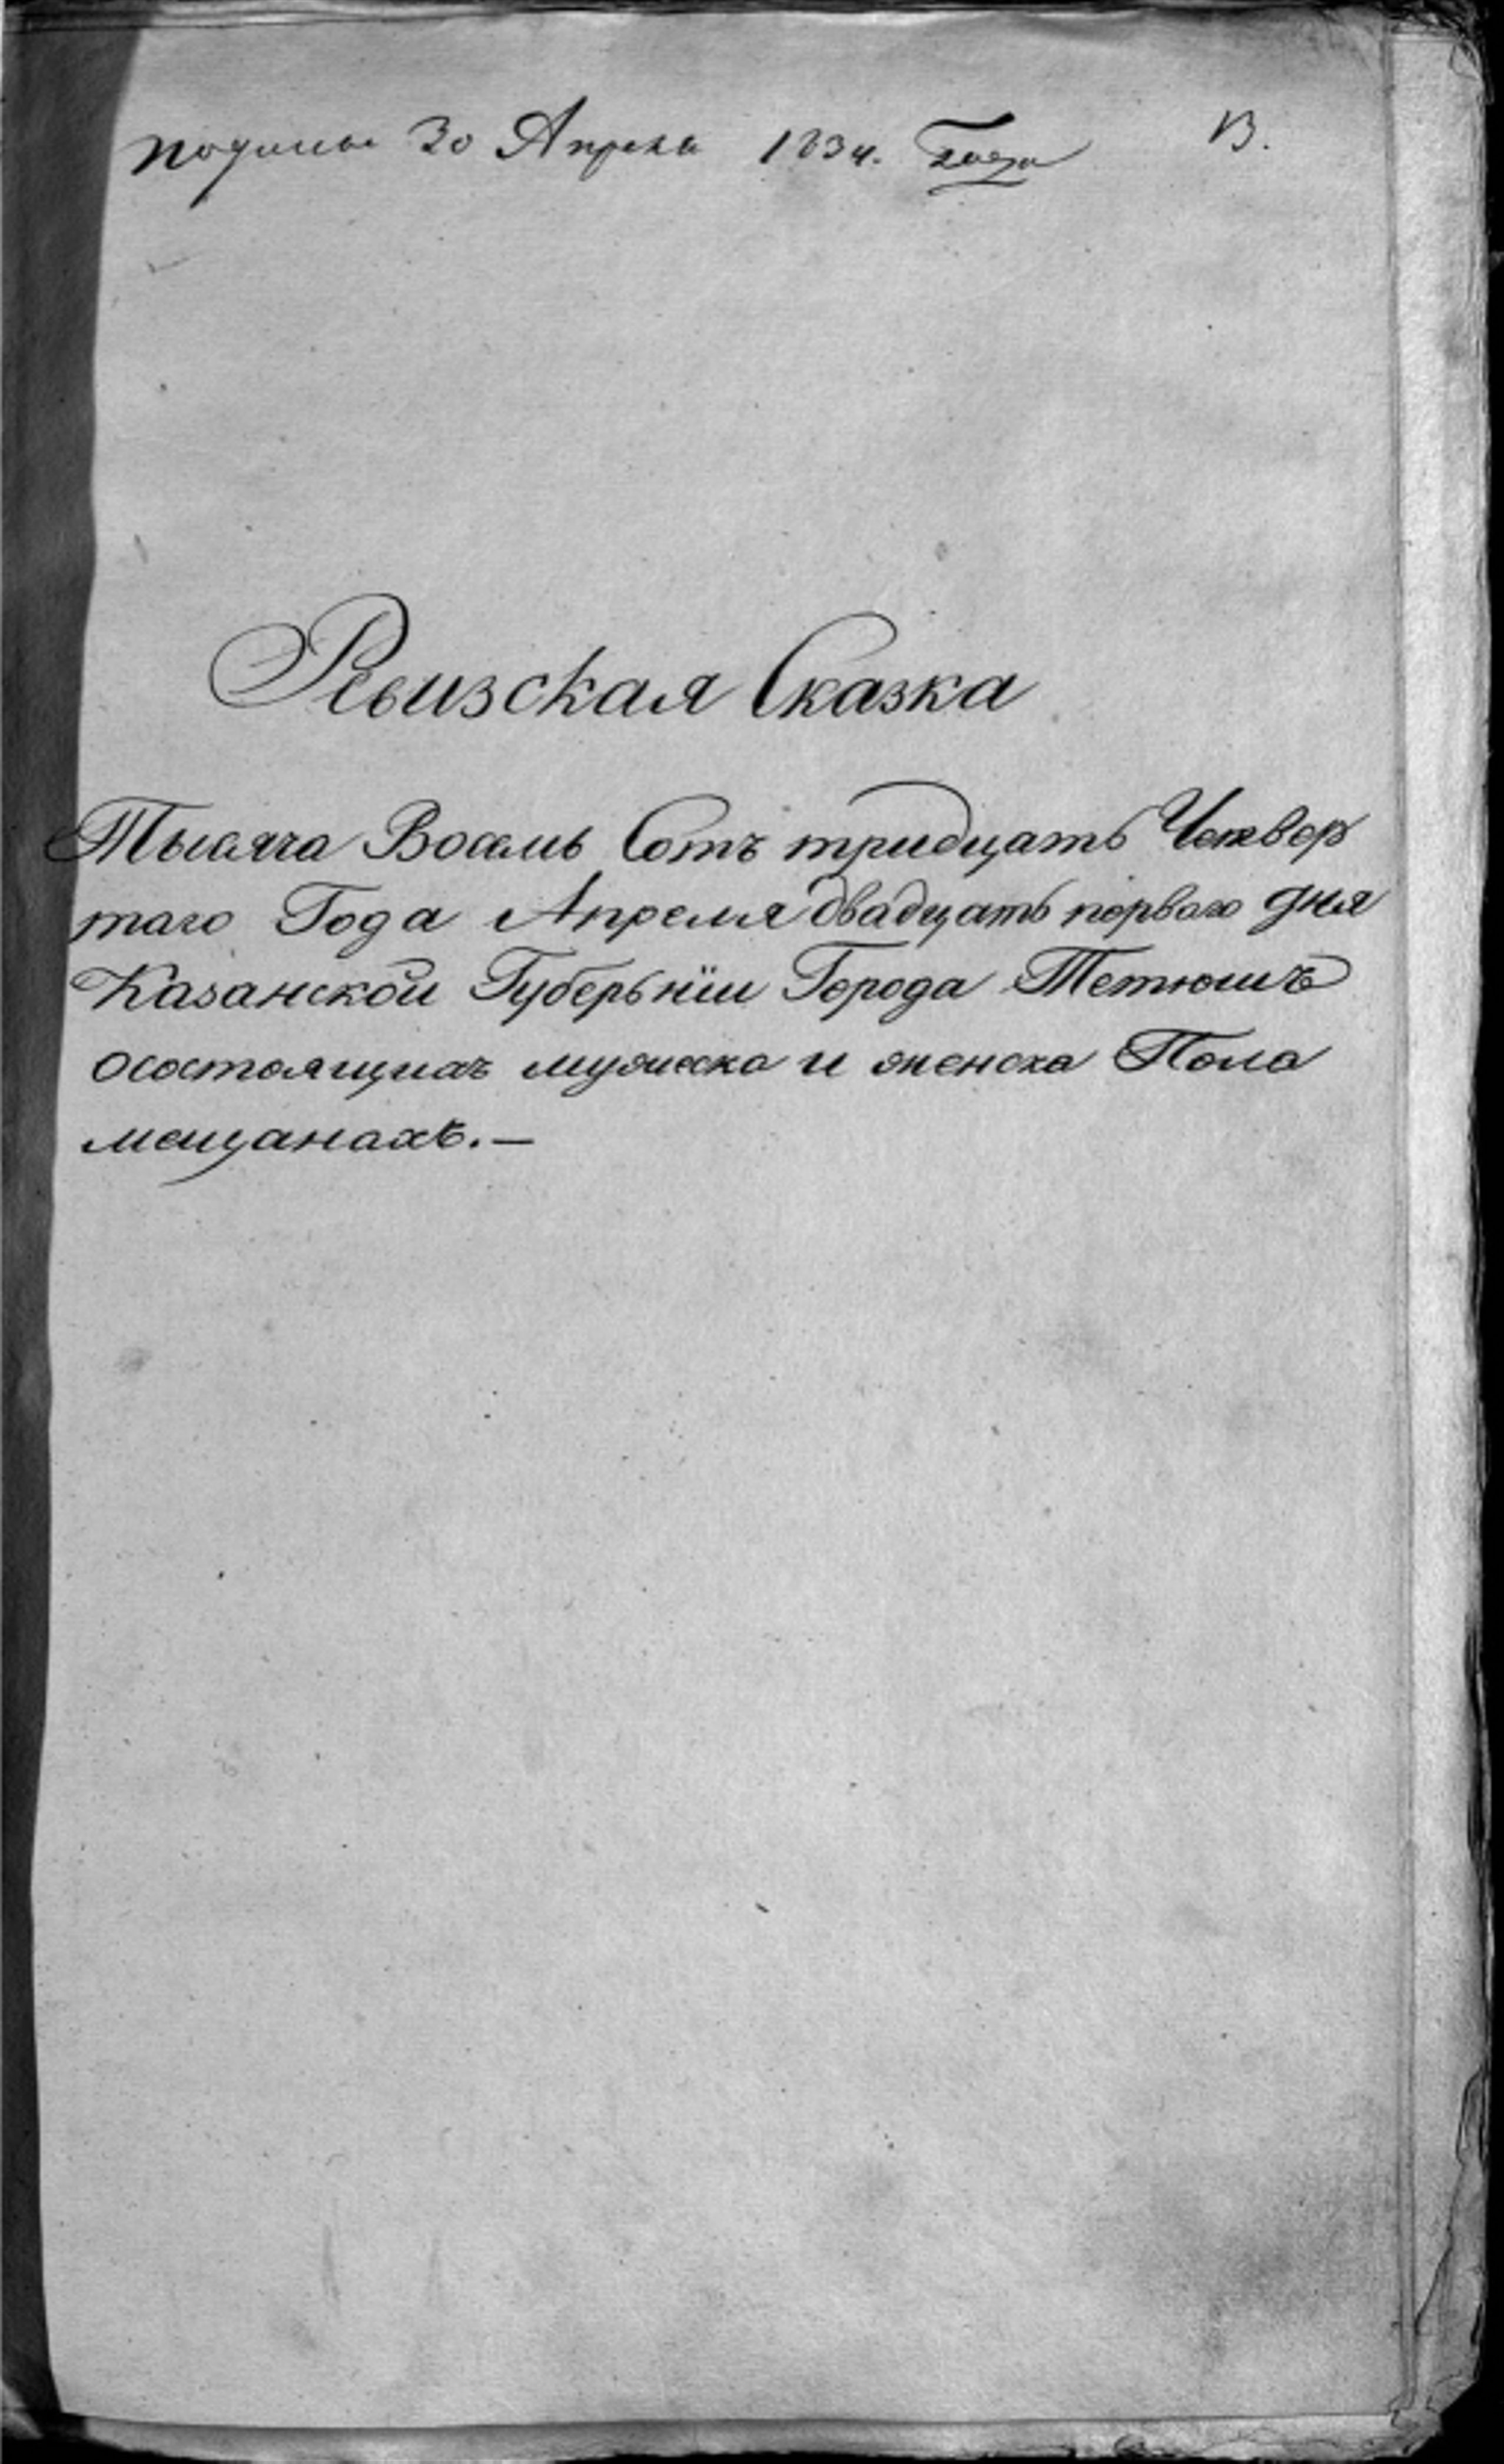 подана 30 Апреля 1834. Года 13.
Ревизская Сказка
Тысяча Восемь Сотъ тридцать Четвер
таго Года Апреля двадцать перваго дня
Казанской Губерьнїи Города Тетюшъ
осостоящихъ мужеска и женска Пола
мещанахъ.—